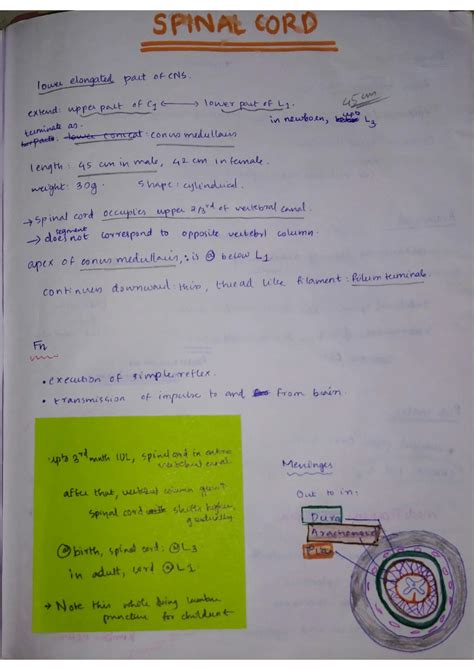 SPINAL CORD
lower elongated part of CNS.
45 cm
extend: upper part of C1 ⟷ lower part of L1.
in newborn, upto L3
terminate as.
lower conical: conus medullaris
length: 45 cm in male, 42 cm in female.
weight: 30g. Shape: cylindrical.
→ Spinal cord occupies upper 2/3rd of vertebral canal.
segment
→ does not correspond to opposite vertebral column.
apex of conus medullaris, is @ below L1
continues downward thin, thread like filament:
Fn
• execution of simple reflex.
• transmission of impulse to and from brain.
upto 3rd month IUL, spinal cord in entire
vertebral canal
after that, vertebral column grows
spinal cord shifts higher,
gradually
@ birth, spinal cord: @ L3
in adult, cord @ L1
→ Note this while doing lumbar
puncture for children
Meninges
Out to in:
Dura
Arachnoid
Pia